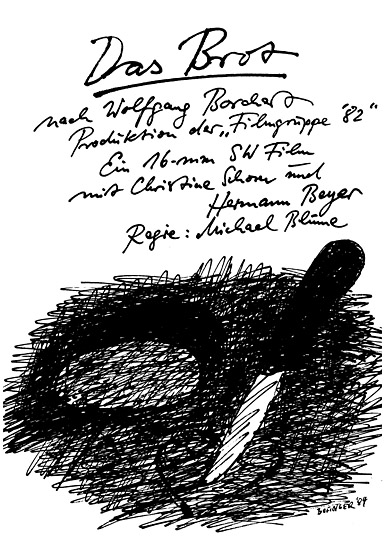 Das Brot
nach Wolfgang Borchert
Produktion der „Filmgruppe '82“
Ein 16-mm SW Film
mit Christine Schorn und
Hermann Beyer
Regie: Michael Blume
'84